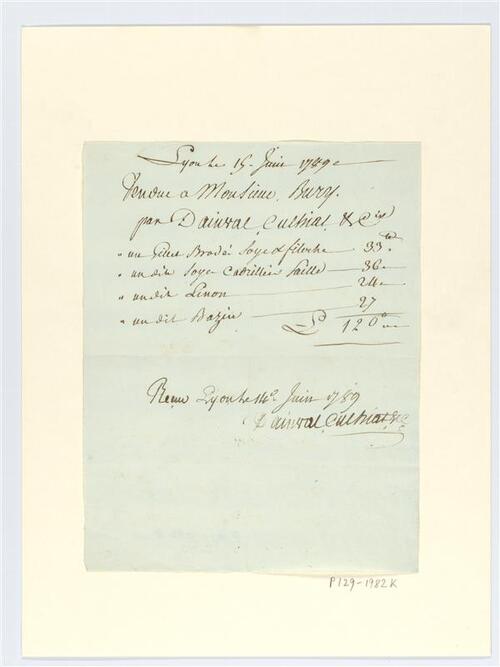 Lyon le 15 Juin 1789
Vendue a Monsieur Bury
par Dainval, Culhiat & Cie
" un Gilet Brodé Soye & filoche 33
" un dit Soye Cadrillier Paille 36
" un dit Linon 24
" un dit Bazin 27
L 120
Recu Lyon le 14e Juin 1789
Dainval Culhiat & C
P129-1982K